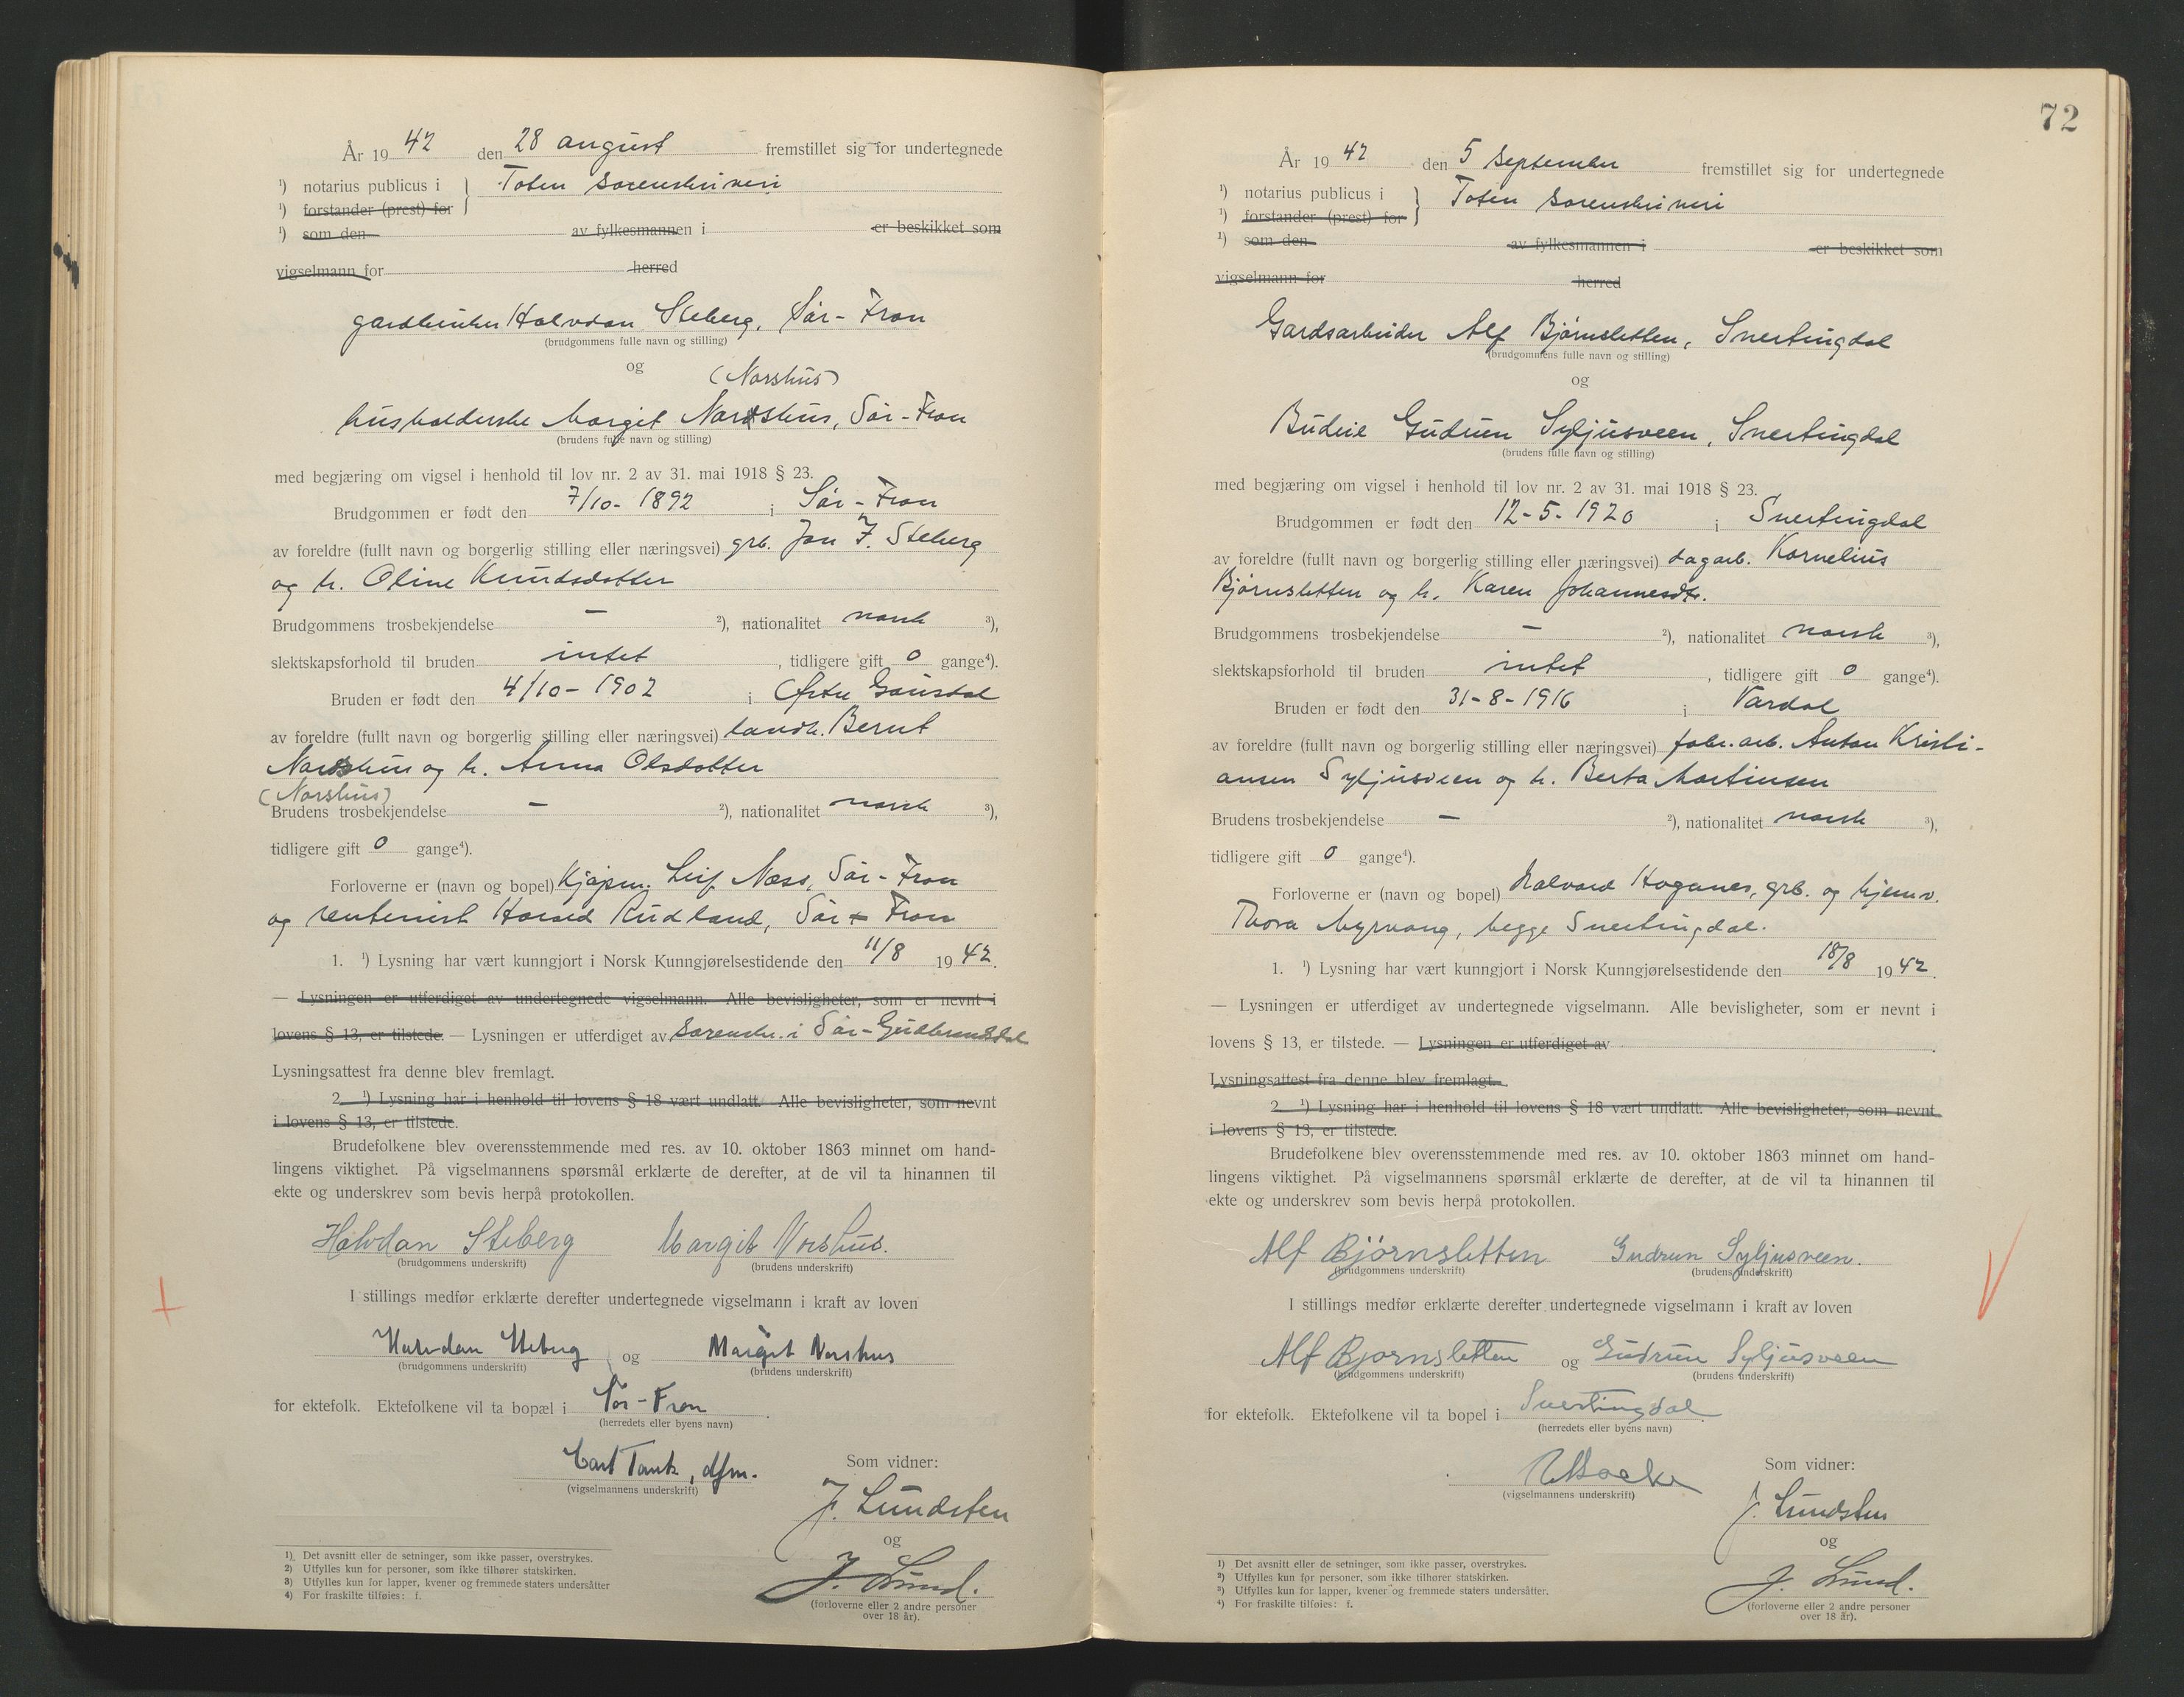 År 19 42 den 28 august fremstillet sig for undertegnede
¹) notarius publicus i } Toten sorenskriveri
¹) forstander (prest) for
¹) som den av fylkesmannen i er beskikket som
vigselmann for herred
gardbruker Halvdan Steberg, Sør-Fron
(brudgommens fulle navn og stilling)
og (Norshus)
husholderske Margit Norshus, Sør-Fron
(brudens fulle navn og stilling)
med begjæring om vigsel i henhold til lov nr. 2 av 31. mai 1918 § 23.
Brudgommen er født den 7/10-1892 i Sør-Fron
av foreldre (fullt navn og borgerlig stilling eller næringsvei) grb. Jon F. Steberg
og h. Oline Knudsdotter
Brudgommens trosbekjendelse — ²), nationalitet norsk ³),
slektskapsforhold til bruden intet , tidligere gift 0 gange⁴).
Bruden er født den 4/10-1902 i Østre Gausdal
av foreldre (fullt navn og borgerlig stilling eller næringsvei) landh. Bernt
Norshus og h. Anna Olsdotter
(Norshus)
Brudens trosbekjendelse — ²), nationalitet norsk ³),
tidligere gift 0 gange⁴).
Forloverne er (navn og bopel) Kjøpm. Leif Næss, Sør-Fron
og rentenist Harald Rudland, Sør-Fron
1. ¹) Lysning har vært kunngjort i Norsk Kunngjørelsestidende den 11/8 19 42.
— Lysningen er utferdiget av undertegnede vigselmann. Alle bevisligheter, som er nevnt i
lovens § 13, er tilstede. — Lysningen er utferdiget av sorenskr. i Sør-Gudbrandsdal
Lysningsattest fra denne blev fremlagt.
2. ¹) Lysning har i henhold til lovens § 18 vært undlatt. Alle bevisligheter, som nevnt
i lovens § 13, er tilstede.
Brudefolkene blev overensstemmende med res. av 10. oktober 1863 minnet om hand-
lingens viktighet. På vigselmannens spørsmål erklærte de derefter, at de vil ta hinannen til
ekte og underskrev som bevis herpå protokollen.
Halvdan Steberg Margit Norshus.
(brudgommens underskrift) (brudens underskrift)
I stillings medfør erklærte derefter undertegnede vigselmann i kraft av loven
Halvdan Steberg og Margit Norshus
(brudgommens underskrift) (brudens underskrift)
for ektefolk. Ektefolkene vil ta bopæl i Sør-Fron
(herredets eller byens navn)
Carl Tank, dfm. Som vidner:
(vigselmannens underskrift)
J. Lundsten
og
J. Lund.
(forloverne eller 2 andre personer
over 18 år).
1) Det avsnitt eller de setninger, som ikke passer, overstrykes.
2) Utfylles kun for personer, som ikke tilhører statskirken.
3) Utfylles kun for lapper, kvener og fremmede staters undersåtter
4) For fraskilte tilføies: f.
72
År 19 42 den 5 september fremstillet sig for undertegnede
¹) notarius publicus i } Toten sorenskriveri
¹) forstander (prest) for
¹) som den av fylkesmannen i er beskikket som
vigselmann for herred
Gardsarbeider Alf Bjørnsletten, Snertingdal
(brudgommens fulle navn og stilling)
og
Budeie Gudrun Syljusveen, Snertingdal
(brudens fulle navn og stilling)
med begjæring om vigsel i henhold til lov nr. 2 av 31. mai 1918 § 23.
Brudgommen er født den 12-5-1920 i Snertingdal
av foreldre (fullt navn og borgerlig stilling eller næringsvei) dagarb. Kornelius
Bjørnsletten og h. Karen Johannesdtr.
Brudgommens trosbekjendelse — ²), nationalitet norsk ³),
slektskapsforhold til bruden intet , tidligere gift 0 gange⁴).
Bruden er født den 31-8-1916 i Vardal
av foreldre (fullt navn og borgerlig stilling eller næringsvei) fabr. arb. Anton Kristi-
ansen Syljusveen og h. Berta Martinsen
Brudens trosbekjendelse — ²), nationalitet norsk ³),
tidligere gift 0 gange⁴).
Forloverne er (navn og bopel) Halvard Haganes, grb. og hjemv.
Thora Myrvang, begge Snertingdal.
1. ¹) Lysning har vært kunngjort i Norsk Kunngjørelsestidende den 18/8 19 42.
— Lysningen er utferdiget av undertegnede vigselmann. Alle bevisligheter, som er nevnt i
lovens § 13, er tilstede. — Lysningen er utferdiget av
Lysningsattest fra denne blev fremlagt.
2. ¹) Lysning har i henhold til lovens § 18 vært undlatt. Alle bevisligheter, som nevnt
i lovens § 13, er tilstede.
Brudefolkene blev overensstemmende med res. av 10. oktober 1863 minnet om hand-
lingens viktighet. På vigselmannens spørsmål erklærte de derefter, at de vil ta hinannen til
ekte og underskrev som bevis herpå protokollen.
Alf Bjørnsletten Gudrun Syljusveen.
(brudgommens underskrift) (brudens underskrift)
I stillings medfør erklærte derefter undertegnede vigselmann i kraft av loven
Alf Bjørnsletten og Gudrun Syljusveen
(brudgommens underskrift) (brudens underskrift)
for ektefolk. Ektefolkene vil ta bopel i Snertingdal
(herredets eller byens navn)
Som vidner:
(vigselmannens underskrift)
J. Lundsten
og
J. Lund.
(forloverne eller 2 andre personer
over 18 år).
1) Det avsnitt eller de setninger, som ikke passer, overstrykes.
2) Utfylles kun for personer, som ikke tilhører statskirken.
3) Utfylles kun for lapper, kvener og fremmede staters undersåtter.
4) For fraskilte tilføies: f.